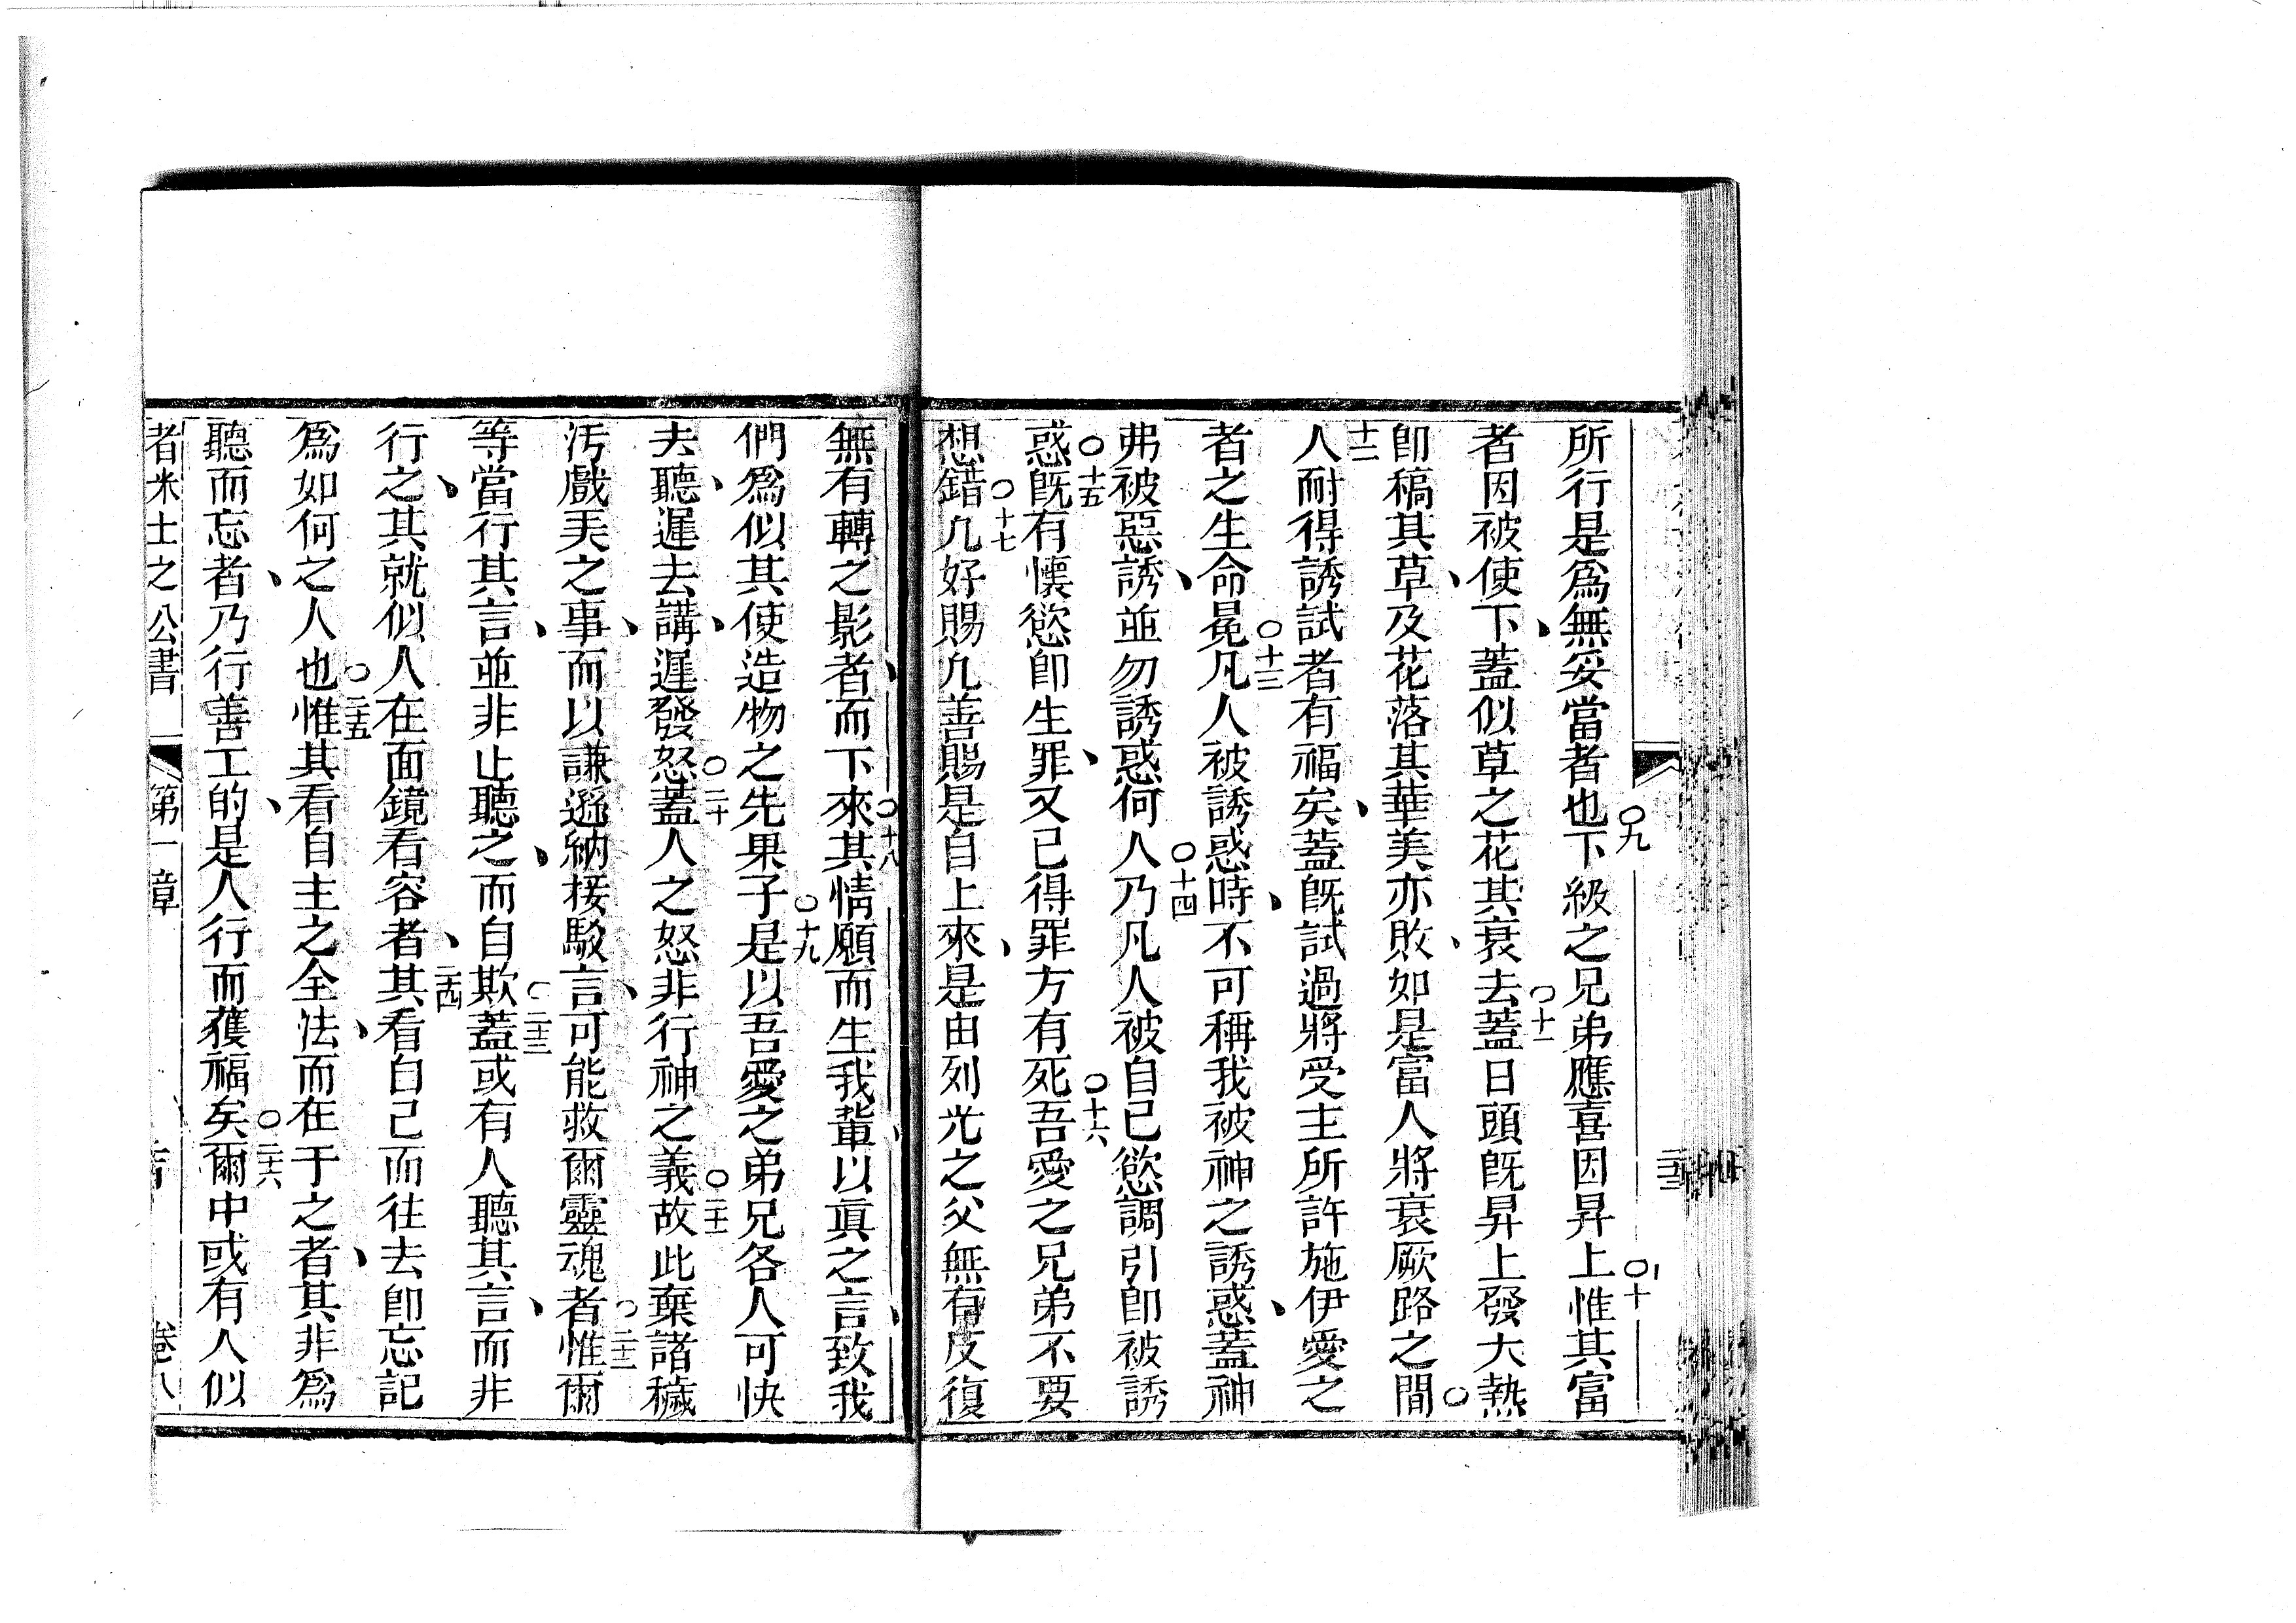 所行是爲無妥當者也○九下級之兄弟應喜因昇上○十惟其富
者因被使下、蓋似草之花其衰去○十一蓋日頭既昇上發大熱
即稿其草、及花落其華美亦敗、如是富人將衰厥路之間○
十二人耐得誘試者有福矣、蓋既試過將受主所許施伊愛之
者之生命冕○十三凡人被誘惑時、不可稱我被神之誘惑、蓋神
弗被惡誘、並勿誘惑何人○十四乃凡人被自己慾調引即被誘
惑○十五既有懷慾即生罪、又已得罪方有死○十六吾愛之兄弟不要
想錯○十七凡好賜凡善賜是自上來、是由列光之父無有反復
無有轉之影者、而下來○十八其情願而生我輩、以眞之言、致我
們爲似其使造物之先果子○十九是以吾愛之弟兄各人可快
去聽、遲去講、遲發怒○二十蓋人之怒非行神之義○二十一故此棄諸穢
汚戲美之事、而以謙遜納接馭言、可能救爾靈魂者○二十二惟爾
等當行其言、並非止聽之、而自欺○二十三蓋或有人聽其言、而非
行之、其就似人在面鏡看容者、二十四其看自己而往去即忘記
爲如何之人也○二十五惟其看自主之全法、而在于之者、其非爲
聽而忘者、乃行善工的、是人行而獲福矣○二十六爾中或有人似
者米士之公書 第一章 卷八